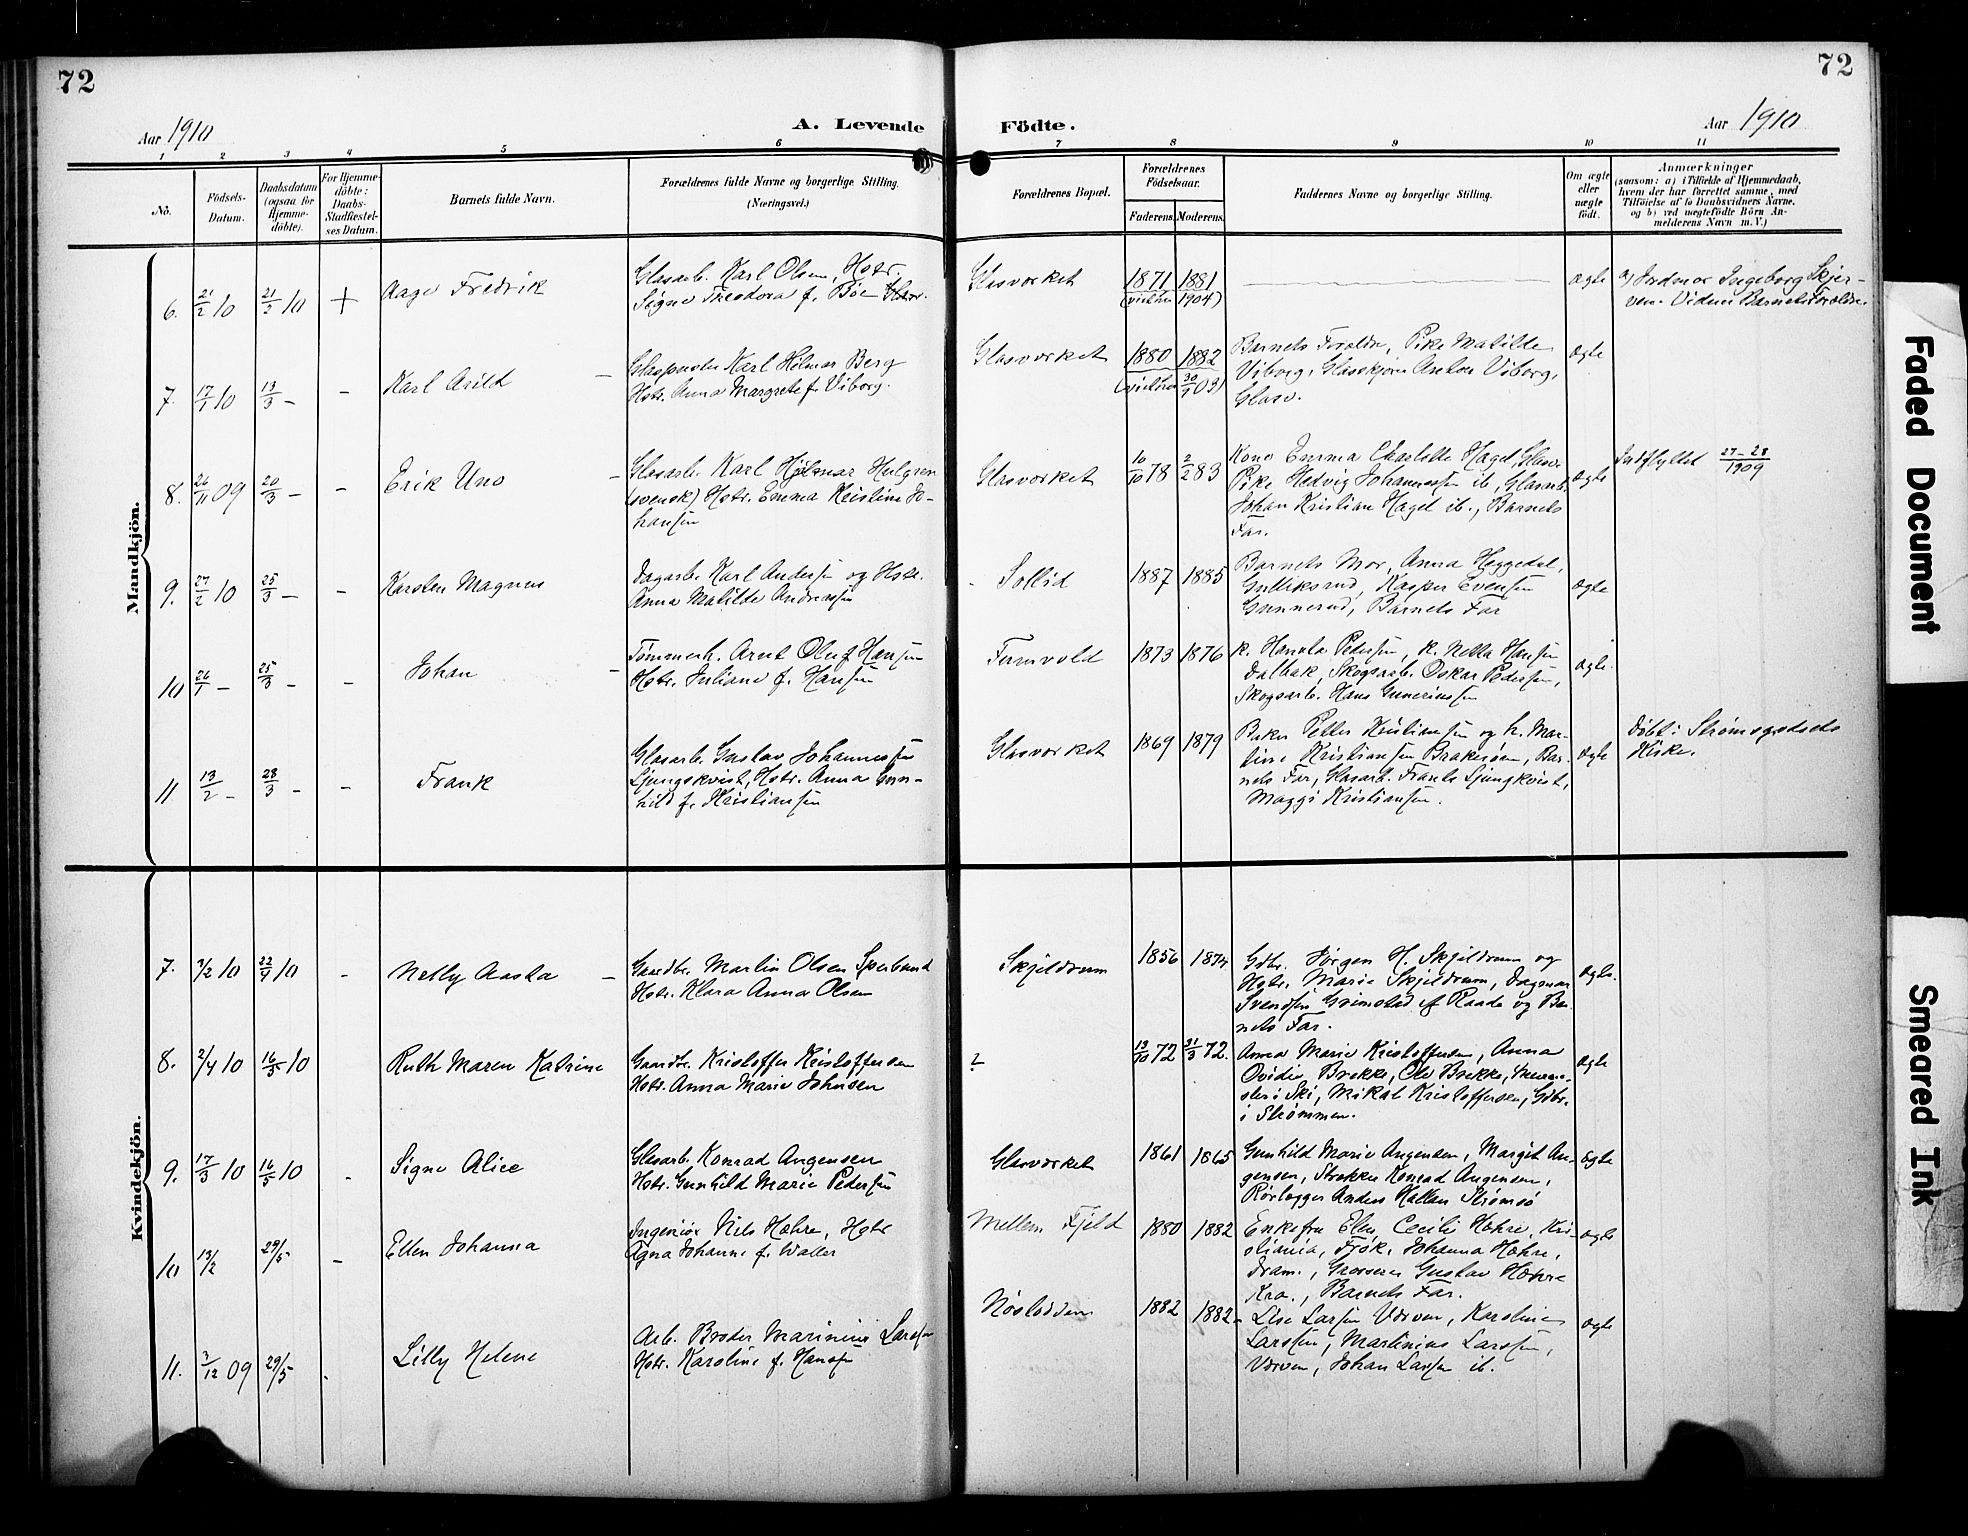 72
72
Aar 1910
A. Levende Födte.
Aar 1910
1 2 3 4 5 6 7 8 9 10 11
No.
Födsels-
Datum.
Daabsdatum
(ogsaa for
Hjemme-
döbte).
For Hjemme-
döbte:
Daabs-
Stadfæstel-
ses Datum.
Barnets fulde Navn.
Forældrenes fulde Navne og borgerlige Stilling.
(Næringsvei.)
Forældrenes Bopæl.
Forældrenes
Födselsaar.
Faderens. Moderens.
Faddernes Navne og borgerlige Stilling.
Om ægte
eller
uægte
födt.
Anmærkninger
(saasom: a) i Tilfælde af Hjemmedaab,
hvem der har forrettet samme, med
Tilföielse af to Daabsvidners Navne,
og b) ved uægtefödte Börn An-
melderens Navn m. V.)
Mandkjön.
6. 21/2 10 21/2 10 + Aage Fredrik
Glasarb. Karl Olsen, Hstr.
Signe Theodora f. Böe
Glasværket 1871 1881
(viet 1904)
ægte
a) Jordmor Ingeborg Skjer-
ven. Vidner Barnets Forældre
7. 17/1 10 13/3 – - Karl Arild
Glaspuster Karl Hilmar Berg
Hstr. Anna Margrete f. Viborg.
Glasværket 1880 1882
30/9 03)
Barnets Forældre, Pike Matilde
Viborg, Anton Viborg,
Glasv.
ægte
8. 26/11 09 20/3 – - Erik Uno
Glasarb. Karl Hjalmar Hulgren
(svensk) Hstr. Emma Kristine Jo-
hansen
Glasværket 10/10 78 2/2 83
Kone Emma Charlotte Hagel, Glasv.
Pike Hedvig Johannessen ib, Glasarb.
Johan Kristian Hagel ib., Barnets
Far.
ægte
Indflyttet 27-28/1909
9. 27/2 10 25/3 – - Karsten Magnus
Dagarb. Karl Andersen og Hstr.
Anna Matilde Andreassen
Sollid 1887 1885
Barnets Mor, Anna Heggedal,
Gulliksrud, Kasper Evensen
Gunnerud, Barnets Far
ægte
10 26/1 – 25/3 – - Johan
Tømmerh. Arnt Oluf Hansen
Hstr. Juliane f. Hansen
1873 1876
K. Hanna Pedersen, K. Netta Hansen
Dalbak, Skogsarb. Oskar Pedersen,
Skogsarb. Hans Guneriussen
ægte
11 13/2 – 28/3 – - Frank
Glasarb. Gustav Johannessen
Ljungkvist, Hstr. Anna Gun-
hild f. Kristiansen
Glasværket 1869 1879
Baker Petter Kristiansen og h. Mar-
tine Kristiansen Brakerøen, Bar-
nets Far, Glasarb. Frants Ljungkvist,
Maggi Kristiansen.
ægte
Døbt i Strømsgodsets
Kirke.
Kvindekjön.
7. 3/2 10 22/4 10 - Nelly Aasta
Gaardbr. Martin Olsen Sperbund
Hstr. Klara Anna Olsen
Skjeldrum 1856 1874
Gdbr. Jørgen H. Skjeldrum og
Hstr. Marie Skjeldrum, Dagmar
Svendsen Grimstad af Raade og Bar-
nets Far.
ægte.
8. 2/4 10 16/5 10 Ruth Maren Katrine
Gaardbr. Kristoffer Kristoffersen
Hstr. Anna Marie Johnsen
? 13/10 72 31/3 72.
Anna Marie Kristoffersen, Anna
Ovidie Brekke, Ole Brekke,
i Ski, Mikal Kristoffersen, Gdbr.
i Strømmen.
ægte
9. 17/3 10 16/5 10 - Signe Alice
Glasarb. Konrad Angensen
Hstr. Gunhild Marie Pedersen
Glasværket 1861 1865
Gunhild Marie Angensen, Margit An-
gensen, Strekker Konrad Angensen,
Rørlægger Anders Kallan Strømsø
ægte
10 13/2 29/5 - Ellen Johanna
Ingeniør Niels Høhre, Hstr
Agna Johanne f. Waller
Mellem Fjeld 1880 1882
Enkefru Elen Cecilie Høhre, Kri-
stiania, Frøk. Johanna Høhre,
Dram., Grosserer Gustav Høhre
Kra., Barnets Far.
ægte
11. 3/12 09 29/5 . Lilly Helene
Arb. Broder Marinius Larsen
Hstr. Karoline f. Hansen
Nøsteddem 1882 1882
Lise Larsen Værven, Karoline
Larssen, Martinius Larssen,
Værven, Johan Larsen ib.
ægte
Faded Document
Smeared Ink